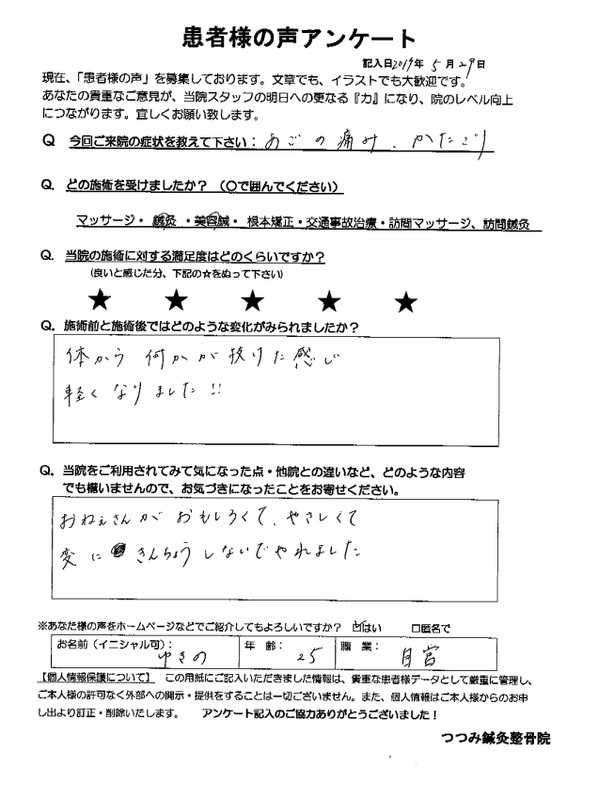 患者様の声アンケート
記入日2019年 5月29日
現在、「患者様の声」を募集しております。文章でも、イラストでも大歓迎です。
あなたの貴重なご意見が、当院スタッフの明日への更なる『力』になり、院のレベル向上
につながります。宜しくお願い致します。
Q 今回ご来院の症状を教えて下さい: あごの痛み、かたこり
Q. どの施術を受けましたか?(〇で囲んでください)
マッサージ・鍼灸・美容鍼・根本矯正・交通事故治療・訪問マッサージ、訪問鍼灸
Q. 当院の施術に対する満足度はどのくらいですか?
(良いと感じた分、下記の☆をぬって下さい)
★ ★ ★ ★ ★
Q. 施術前と施術後ではどのような変化がみられましたか?
体から 何かが 抜けた感じ
軽く なりました!!
Q. 当院をご利用されてみて気になった点・他院との違いなど、どのような内容
でも構いませんので、お気づきになったことをお寄せください。
おねぇさんが おもしろくて、やさしくて
変に きんちょうしないでやれました
※あなた様の声をホームページなどでご紹介してもよろしいですか? ☑はい □匿名で
お名前(イニシャル可): ゆきの 年 齢: 25 職 業: 自営
【個人情報保護について】 この用紙にご記入いただきました情報は、貴重な患者様データとして厳重に管理し、
ご本人様の許可なく外部への開示・提供をすることは一切ございません。また、個人情報はご本人様からのお申
し出より訂正・削除いたします。 アンケート記入のご協力ありがとうございました!
つつみ鍼灸整骨院